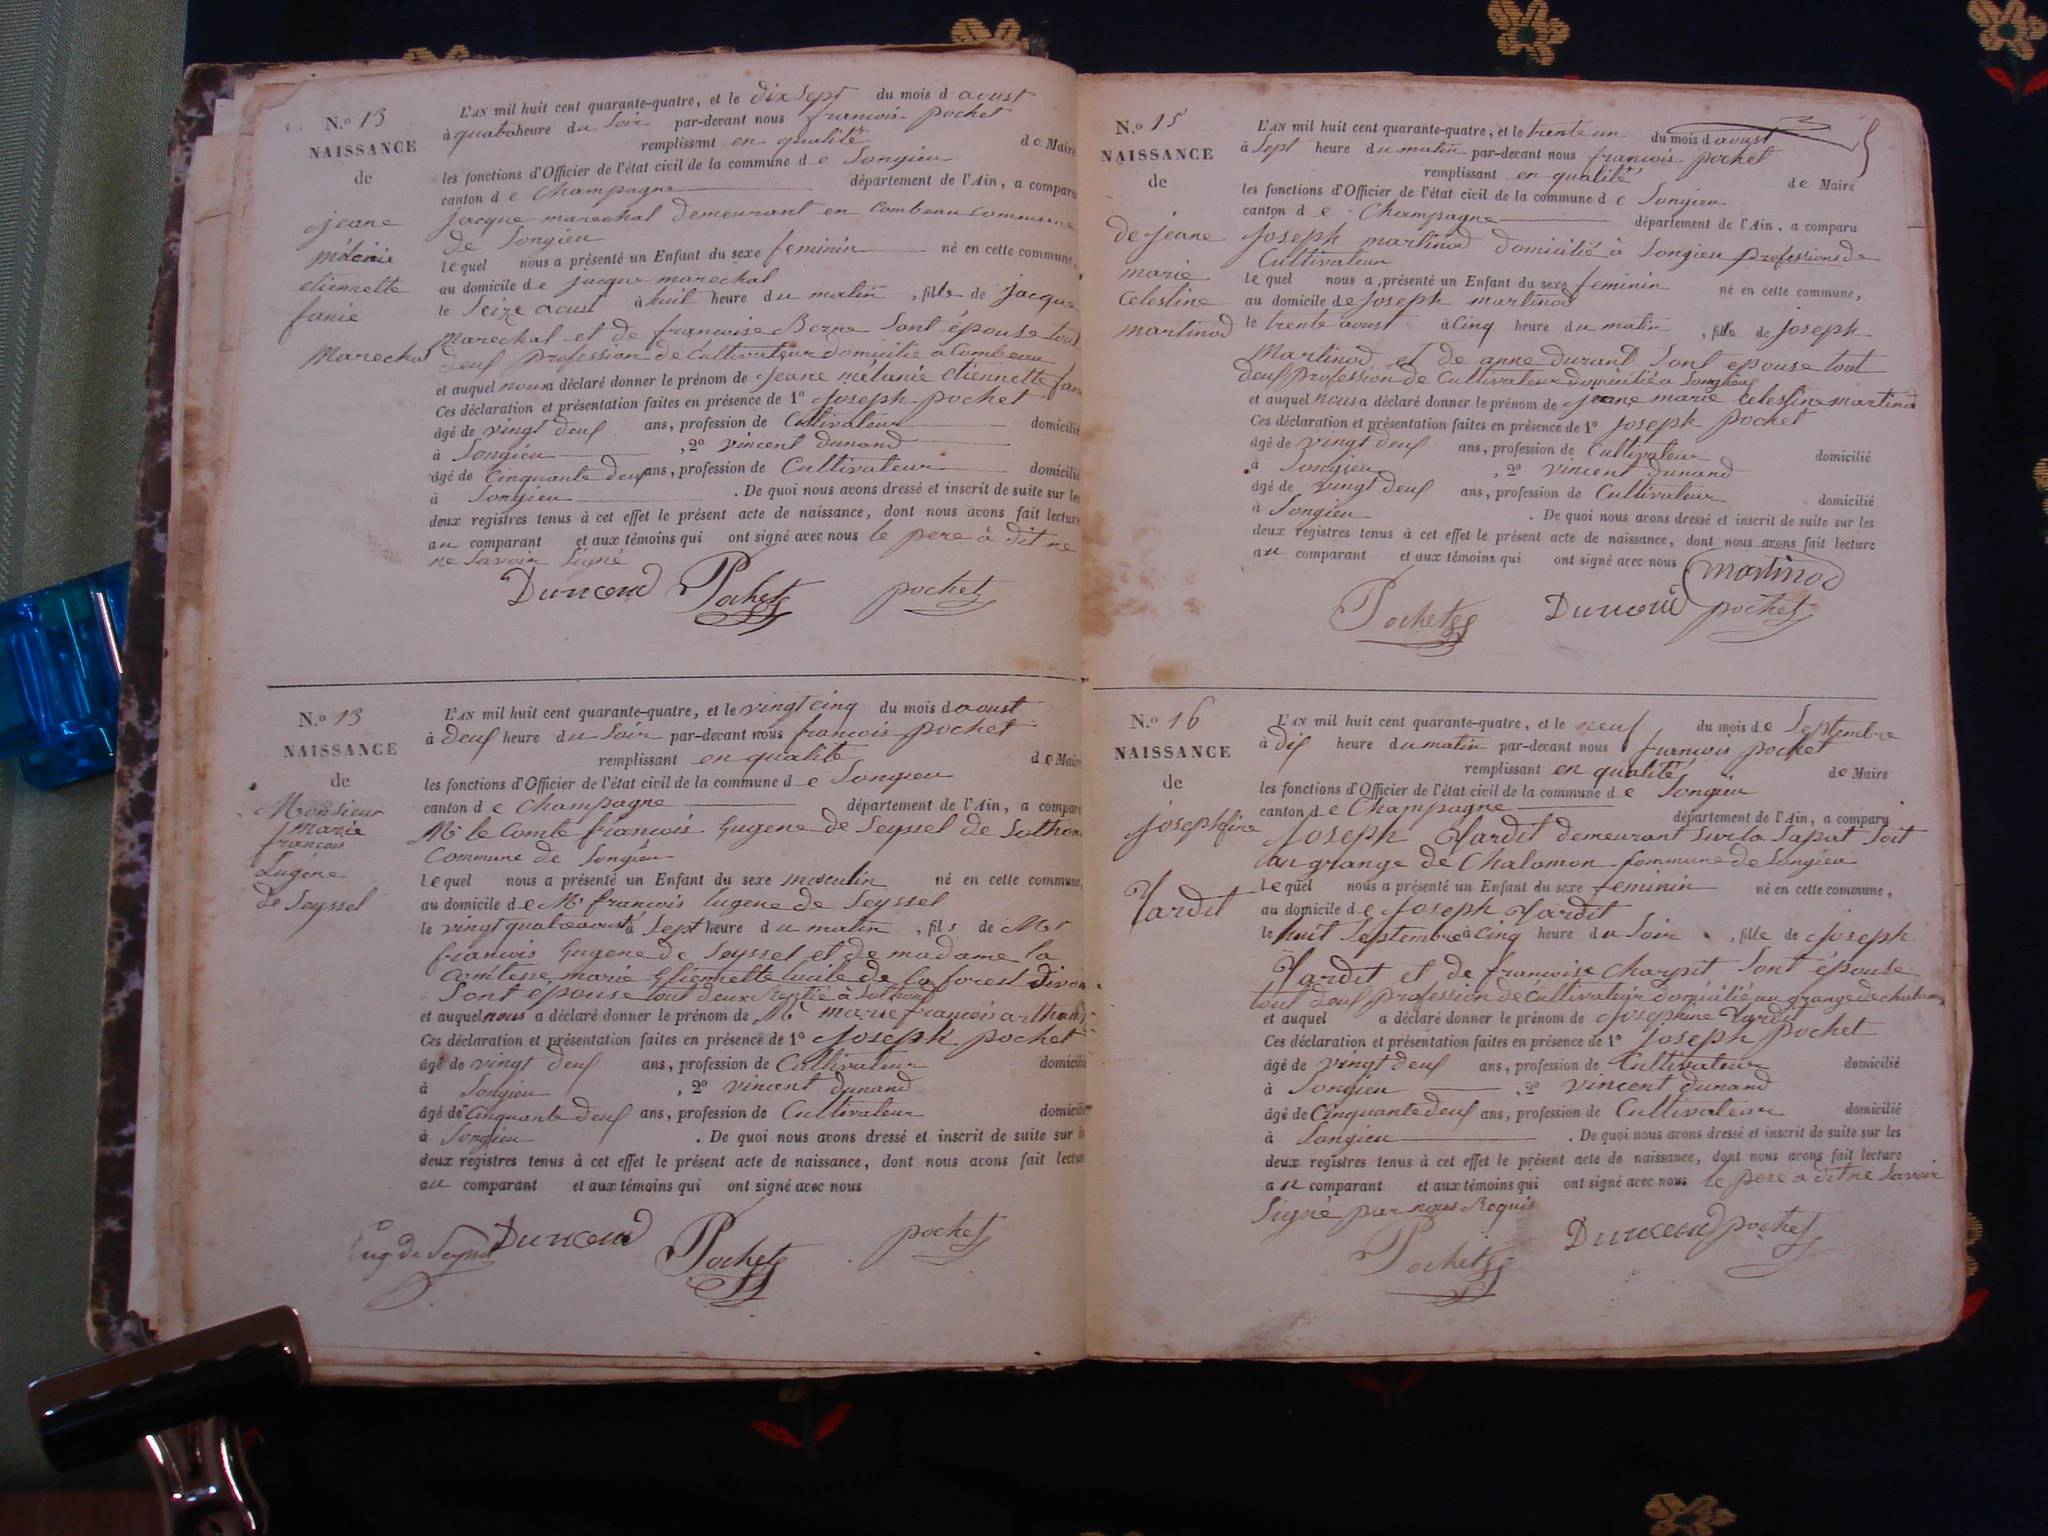 N.o 13
NAISSANCE
de
jeane
mélanie
etiennette
fanie
Marechal
L'AN mil huit cent quarante-quatre, et le dix sept du mois d aoust
à quatre heure du Soir par-devant nous francois pochet
remplissant en qualité de Maire
les fonctions d'Officier de l'état civil de la commune de Songieu
canton de Champagne département de l'Ain, a comparu
jacque marechal demeurant en Combeau commune
de Songieu
lequel nous a présenté un Enfant du sexe feminin né en cette commune,
au domicile de jacque marechal
le Seize aoust à huit heure du matin, fille de jacque
Marechal et de francoise Borne Sont épouse tout
deuf profession de Cultivateur domicilié a Combeau
et auquel nous a déclaré donner le prénom de jeane mélanie etiennette fani
Ces déclaration et présentation faites en présence de 1° joseph pochet
âgé de vingt deuf ans, profession de Cultivateur domicilié
à Songieu, 2° vincent dunand
âgé de Cinquante deuf ans, profession de Cultivateur domicilié
à Songieu. De quoi nous avons dressé et inscrit de suite sur les
deux registres tenus à cet effet le présent acte de naissance, dont nous avons fait lecture
au comparant et aux témoins qui ont signé avec nous le pere à dit ne
ne Savoir Signé
Dunand Pochet pochet
N.o 13
NAISSANCE
de
Monsieur
Marie
francois
Eugène
de Seyssel
L'AN mil huit cent quarante-quatre, et le vingt cinq du mois d aoust
à deuf heure du Soir par-devant nous francois pochet
remplissant en qualité de Maire
les fonctions d'Officier de l'état civil de la commune de Songieu
canton de Champagne département de l'Ain, a comparu
Mr le Comte francois Eugene de Seyssel de Sothon
Commune de Songieu
lequel nous a présenté un Enfant du sexe masculin né en cette commune,
au domicile de Mr francois Eugene de Seyssel
le vingt quatre aoust à Sept heure du matin, fils de Mr
francois Eugene de Seyssel et de madame la
Comtesse marie Etiennette lucile de la forest divon
Sont épouse tout deux à Sothond
et auquel nous a déclaré donner le prénom de Mr marie francois arthand
Ces déclaration et présentation faites en présence de 1° joseph pochet
âgé de vingt deuf ans, profession de Cultivateur domicilié
à Songieu, 2° vincent dunand
âgé de Cinquante deuf ans, profession de Cultivateur domicilié
à Songieu. De quoi nous avons dressé et inscrit de suite sur les
deux registres tenus à cet effet le présent acte de naissance, dont nous avons fait lecture
au comparant et aux témoins qui ont signé avec nous
Eug de Seyssel Dunand Pochet pochet
N.o 15
NAISSANCE
de
de jeane
marie
Celestine
martinod
L'AN mil huit cent quarante-quatre, et le trente un du mois d aoust
à Sept heure du matin par-devant nous francois pochet
remplissant en qualité de Maire
les fonctions d'Officier de l'état civil de la commune de Songieu
canton de Champagne département de l'Ain, a comparu
joseph martinod domicilié à Songieu professions de
Cultivateur
lequel nous a présenté un Enfant du sexe feminin né en cette commune,
au domicile de joseph martinod
le trente aoust à Cinq heure du matin, fille de joseph
Martinod et de anne durant Sont epouse tout
deuf profession de Cultivateur domicilié a Songieu
et auquel nous a déclaré donner le prénom de jeane marie Celestine martinod
Ces déclaration et présentation faites en présence de 1° joseph pochet
âgé de vingt deuf ans, profession de Cultivateur domicilié
à Songieu, 2° vincent dunand
âgé de vingt deuf ans, profession de Cultivateur domicilié
à Songieu. De quoi nous avons dressé et inscrit de suite sur les
deux registres tenus à cet effet le présent acte de naissance, dont nous avons fait lecture
au comparant et aux témoins qui ont signé avec nous martinod
Pochet Dunand pochet
N.o 16
NAISSANCE
de
josephine
Yardit
L'AN mil huit cent quarante-quatre, et le neuf du mois de Septembre
à dif heure du matin par-devant nous francois pochet
remplissant en qualité de Maire
les fonctions d'Officier de l'état civil de la commune de Songieu
canton de Champagne département de l'Ain, a comparu
joseph Yardit demeurant Sur la Sapat Soit
au grange de Chalamon Commune de Songieu
lequel nous a présenté un Enfant du sexe feminin né en cette commune,
au domicile de joseph Yardit
le huit Septembre à Cinq heure du Soir, fille de joseph
Yardit et de francoise Charpit Sont épouse
tout deuf profession de Cultivateur domicilié au grange de chalamon
et auquel a déclaré donner le prénom de josephine Yardit
Ces déclaration et présentation faites en présence de 1° joseph pochet
âgé de vingt deuf ans, profession de Cultivateur domicilié
à Songieu, 2° vincent dunand
âgé de Cinquante deuf ans, profession de Cultivateur domicilié
à Songieu. De quoi nous avons dressé et inscrit de suite sur les
deux registres tenus à cet effet le présent acte de naissance, dont nous avons fait lecture
au comparant et aux témoins qui ont signé avec nous le pere a dit ne Savoir
Signé par nous Requis
Pochet Dunand pochet